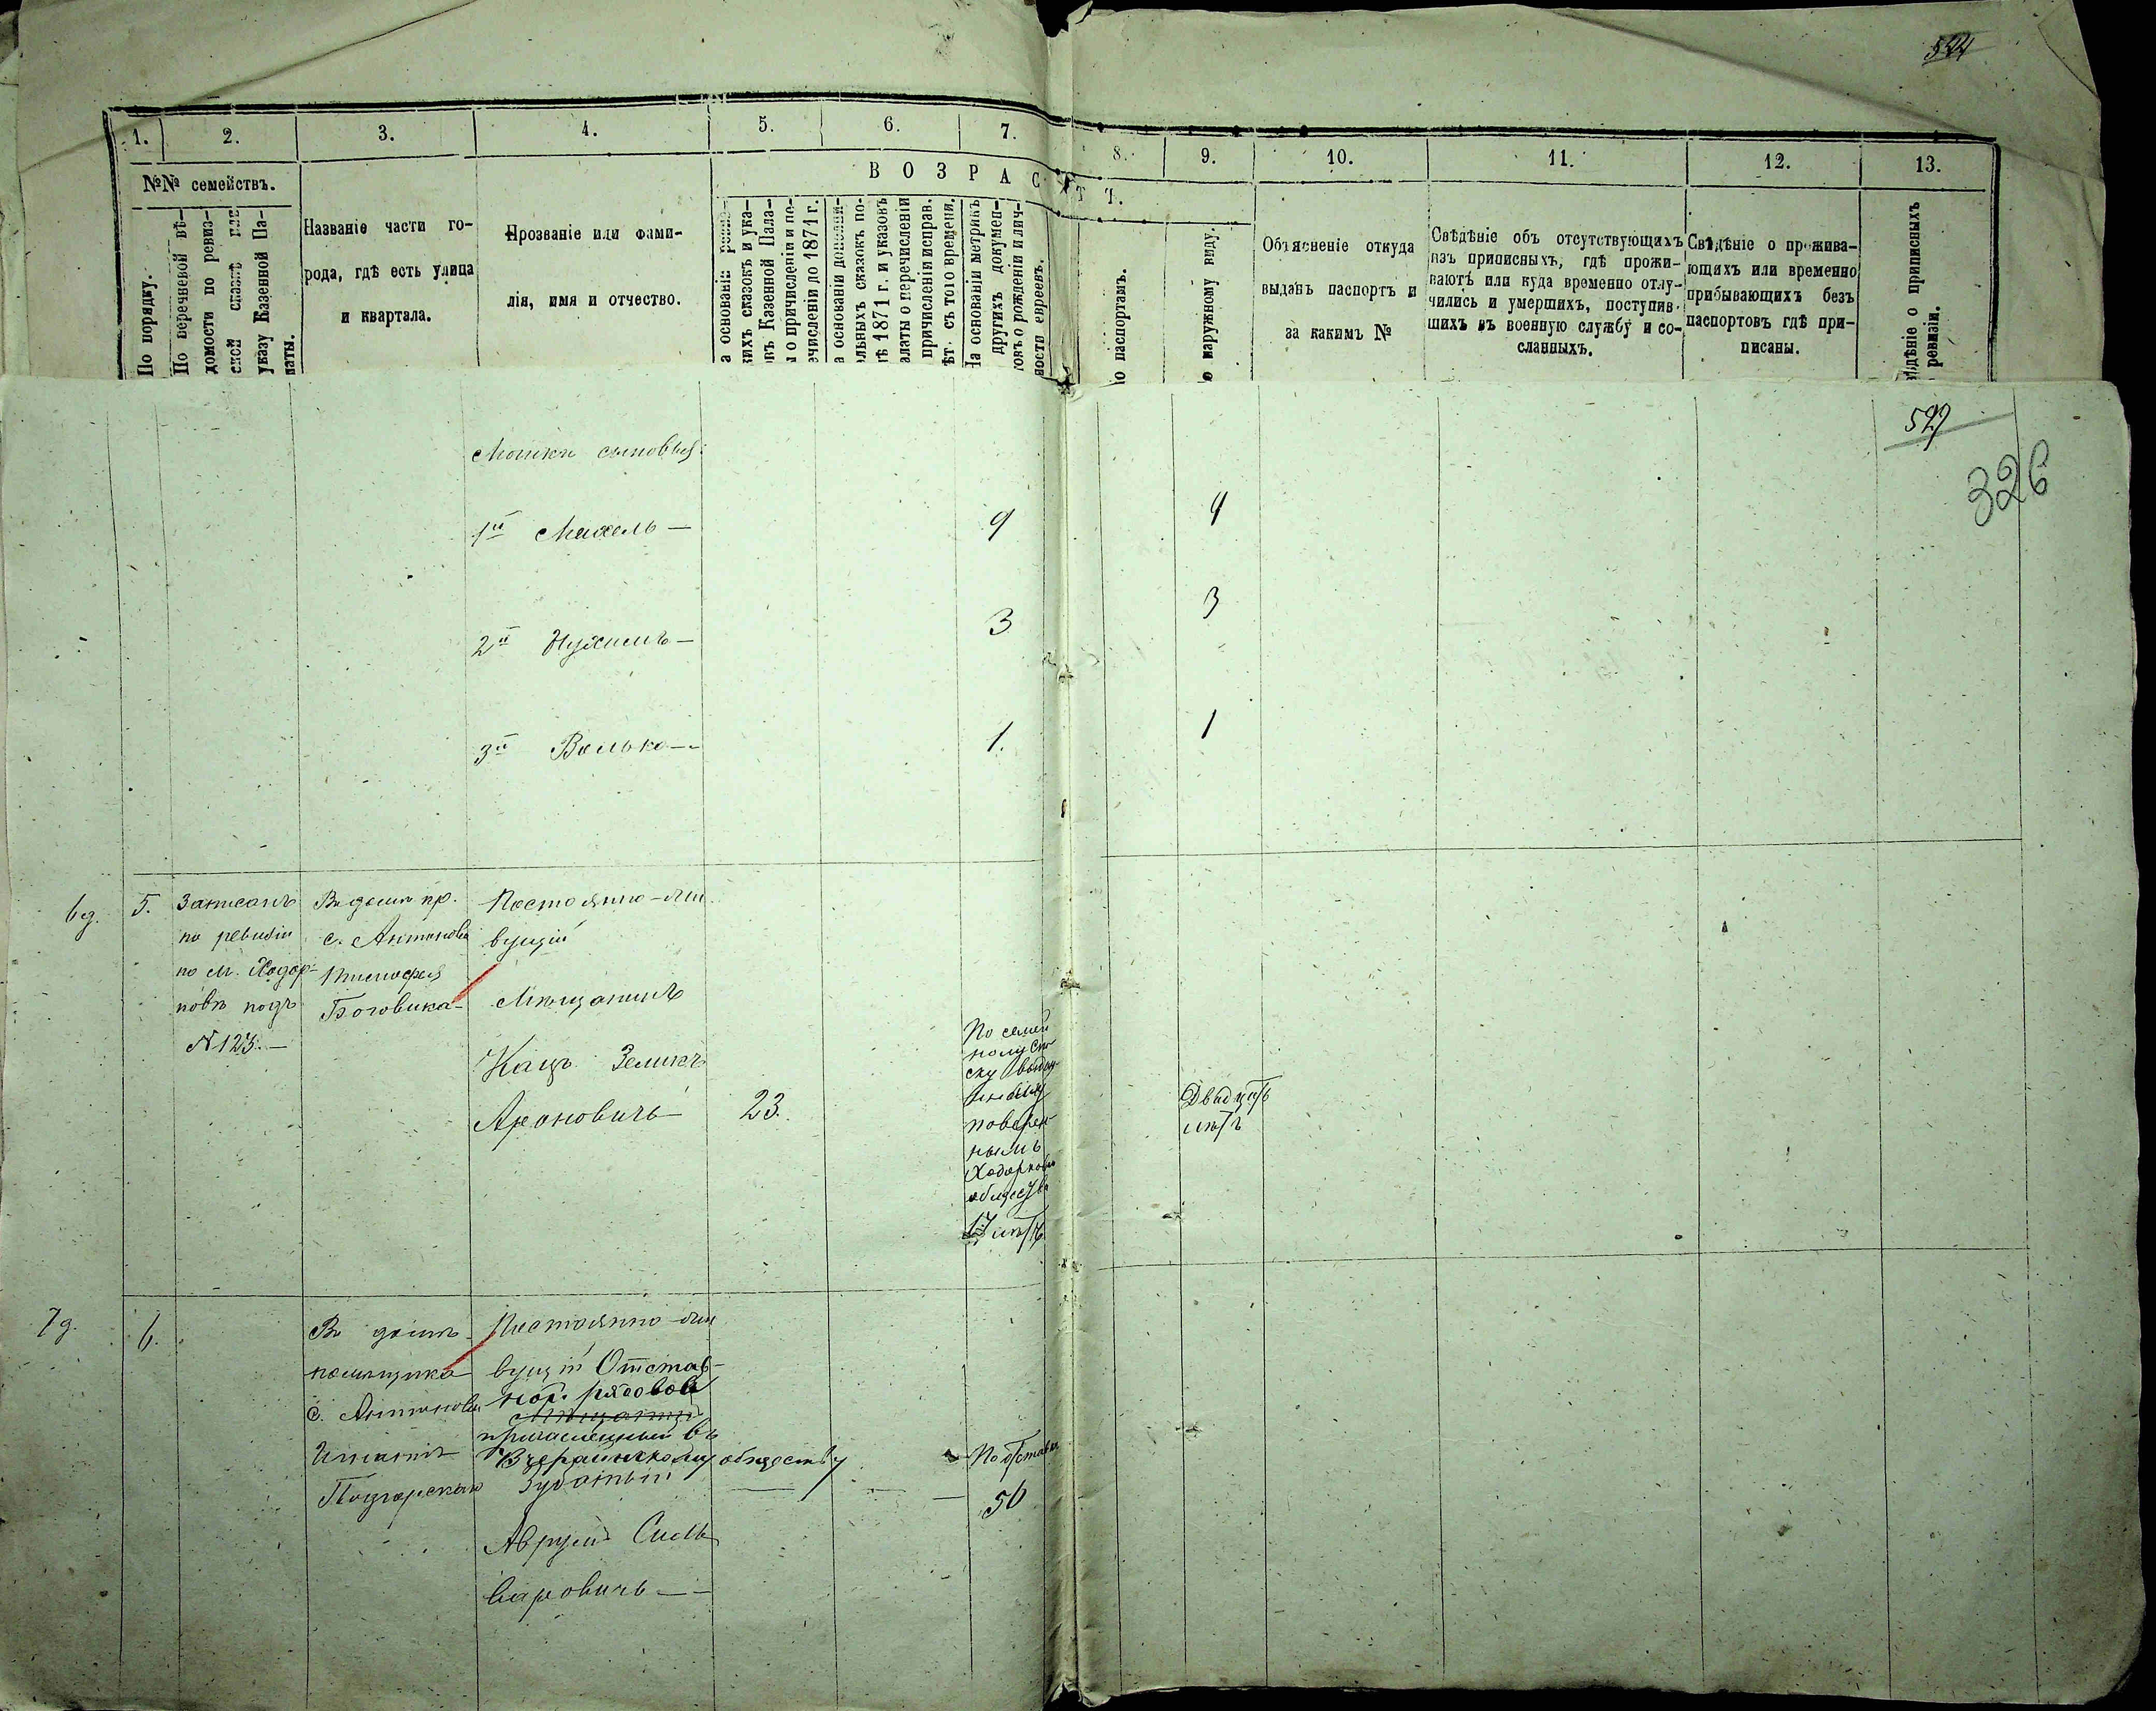 544
1. 2. 3. 4. 5. 6. 7. 8. 9. 10. 11. 12. 13.
№№ семействъ.
По порядку.
По перечневой вѣ-
домости по ревиз-
ской сказкѣ или
указу Казенной Па-
латы.
Названіе части го-
рода, гдѣ есть улица
и квартала.
Прозваніе или фами-
лія, имя и отчество.
ВОЗРАСТЪ.
а основаніи ревиз-
кихъ сказокъ и ука-
въ Казенной Пала-
ы о причисленіи и пе-
ечисленіи до 1871 г.
а основаніи дополни-
льныхъ сказокъ по-
ѣ 1871 г. и указовъ
алаты о перечисленіи
причисленіи исправ.
ѣт. съ того времени.
На основаніи метрикъ
другихъ докумен-
овъ о рожденіи и лич-
ности евреевъ.
о паспортамъ.
о наружному виду.
Объясненіе откуда
выданъ паспортъ и
за какимъ №
Свѣдѣніе объ отсутствующихъ
изъ приписныхъ, гдѣ прожи-
ваютъ или куда временно отлу-
чились и умершихъ, поступив-
шихъ въ военную службу и со-
сланныхъ.
Свѣдѣніе о прожива-
ющихъ или временно
прибывающихъ безъ
паспортовъ гдѣ при-
писаны.
ѣдѣніе о приписныхъ
ревизіи.
527
326
Мошки сыновья:
1й Михель — 9 9
2й Нухимъ — 3 3
3й Волько — 1. 1
6 д. 5.
Записанъ
по ревизіи
по м. Ходор-
ковъ подъ
№ 123. —
Въ домѣ кр.
с. Антоновки
Тимофея
Боговика —
Постоянно-жи
вущій
Мѣщанинъ
Кацъ Зеликъ
Ароновичъ 23.
По семей
ному спи
ску выдан
ному
поверен
нымъ
Ходорков
общества
17 лѣтъ
Двадцать
лѣтъ
7 д. 6.
Въ домѣ
помѣщика
с. Антоновки
Игнатія
Подгорскаго
Постоянно-жи
вущій Отстав-
ной рядовой
Мѣщанинъ
причисленный въ
Вчерайшскому обществу
Зубатый
Аврумъ Сим
харовичъ —
По отставк
50